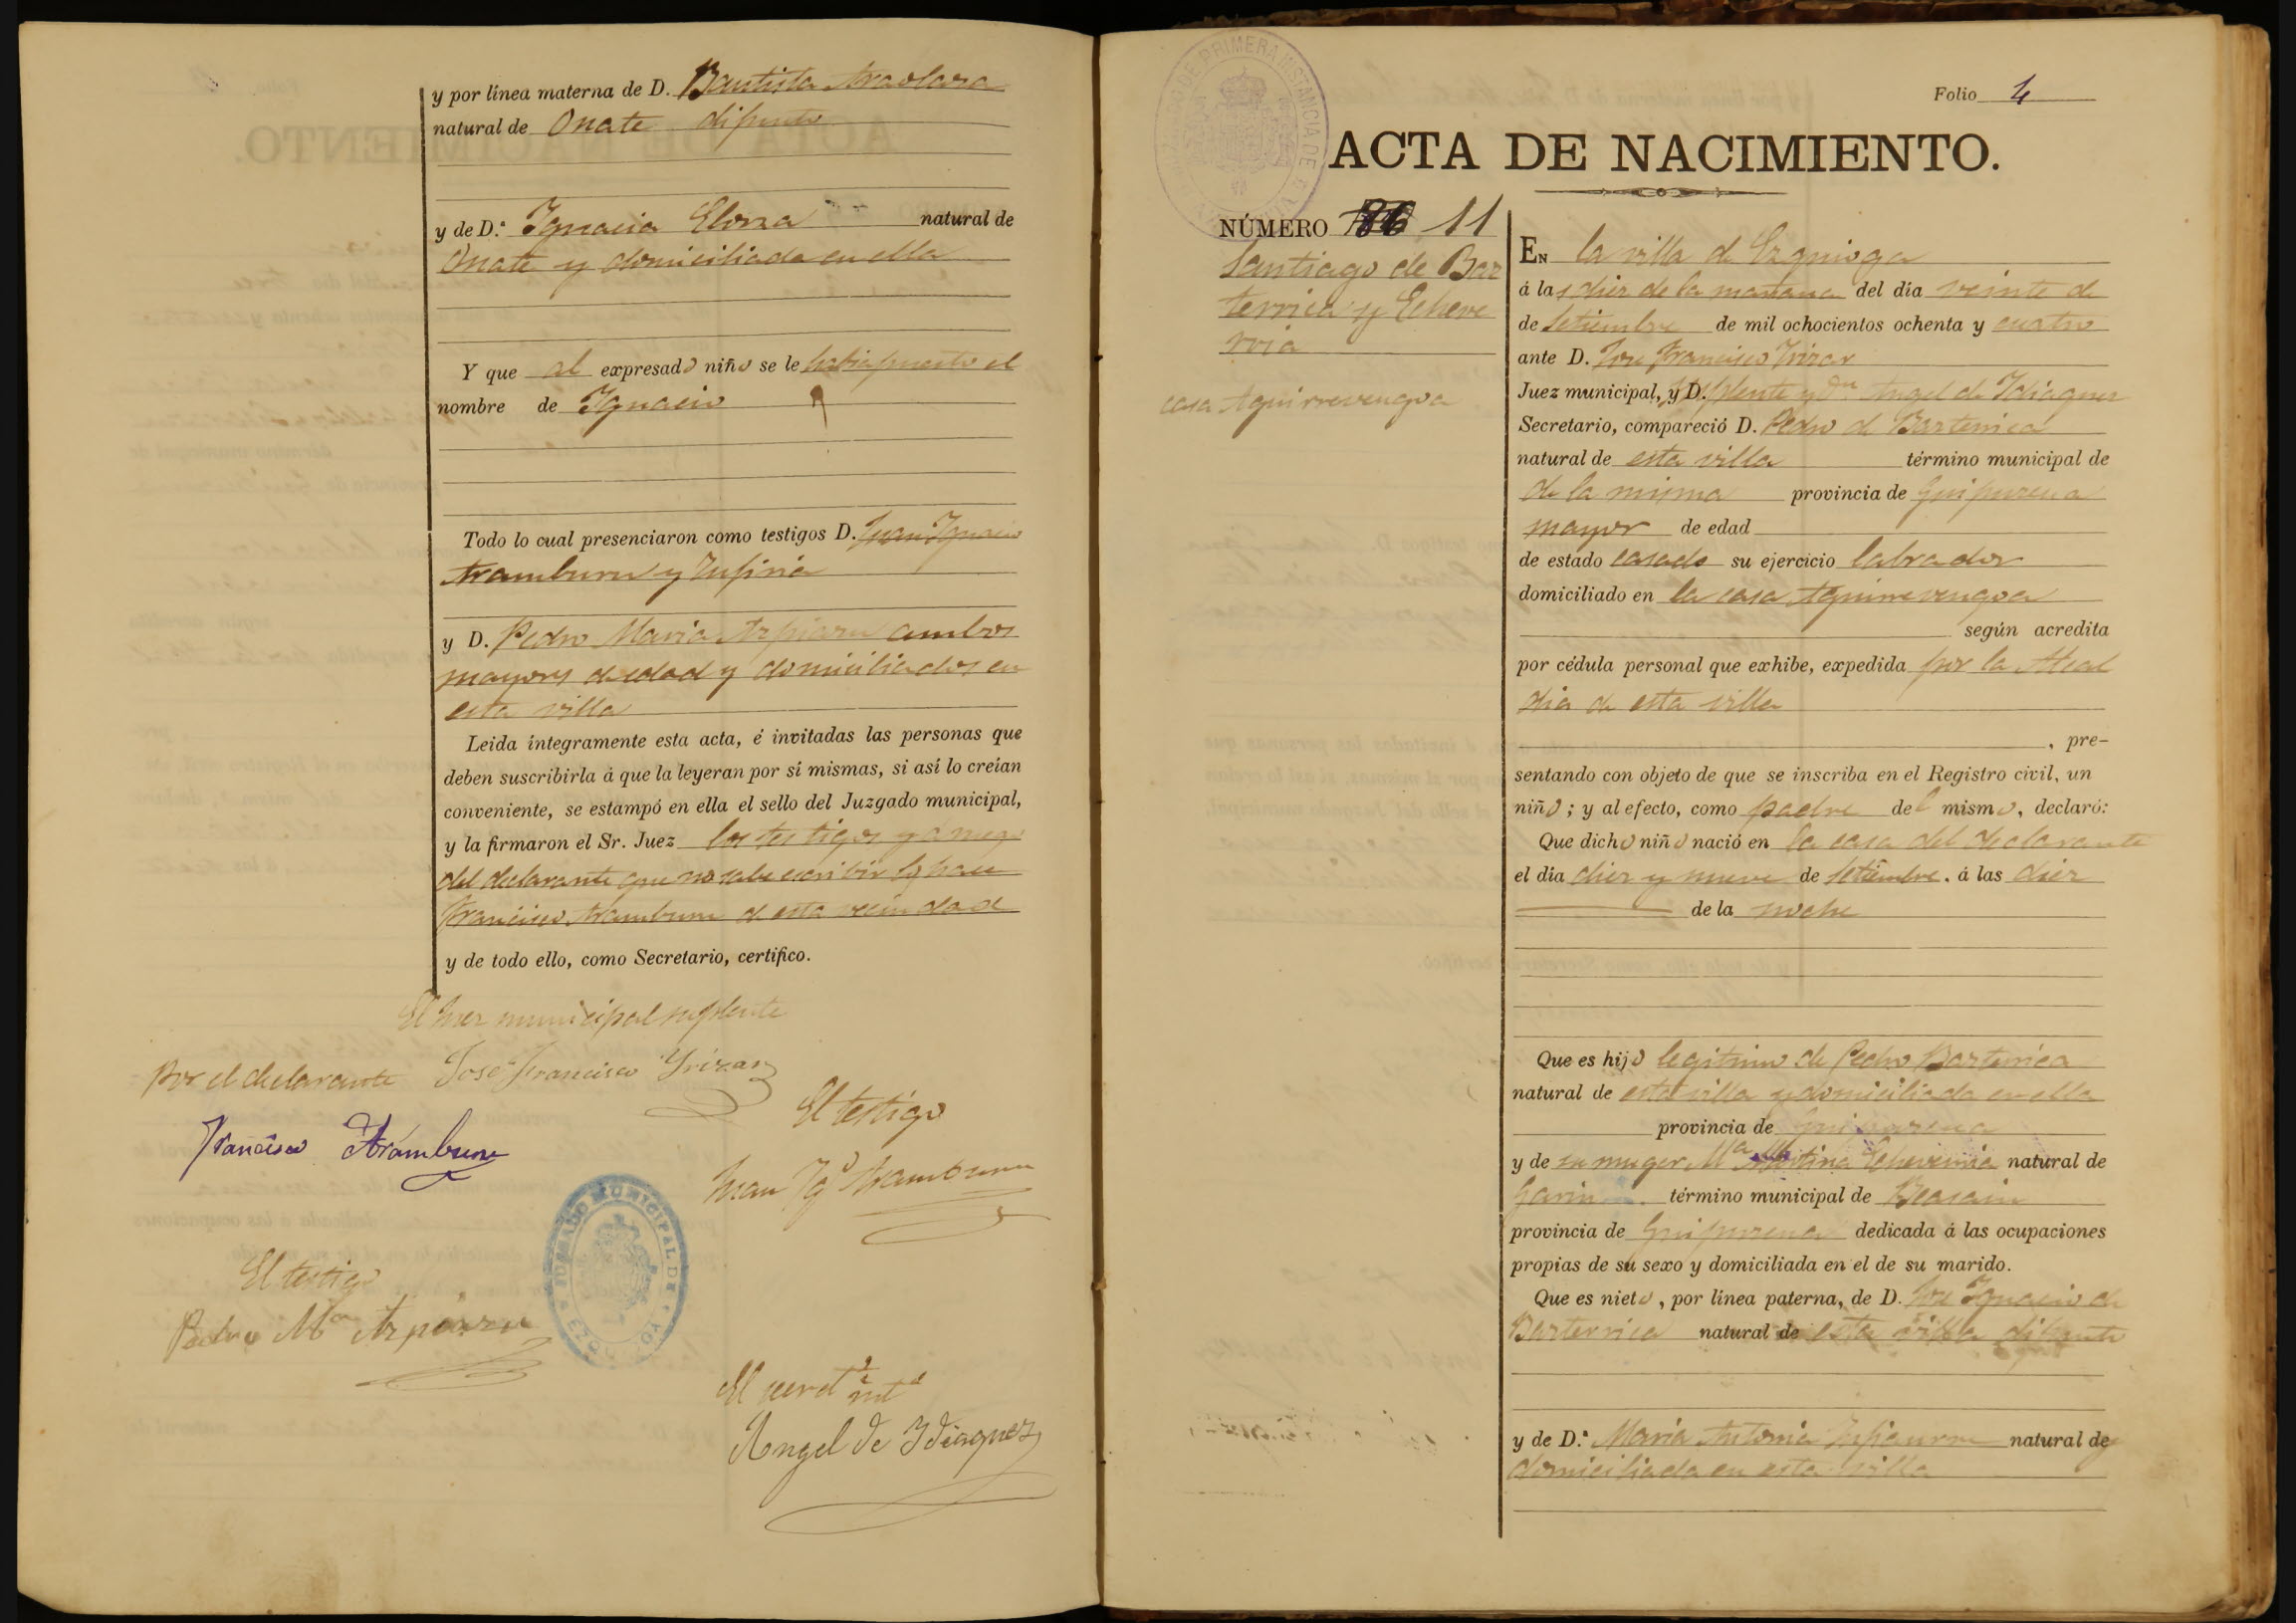 y por línea materna de D. Bautista Araolaza
natural de Oñate difunto
y de D.ª Ignacia Elorza natural de
Oñate y domiciliada en ella
Y que al expresado niño se le habia puesto el
nombre de Ignacio
Todo lo cual presenciaron como testigos D. Juan Ignacio
Aramburu y Zufiria
y D. Pedro Maria Azpiazu ambos
mayores de edad y domiciliados en
esta villa
Leida íntegramente esta acta, é invitadas las personas que
deben suscribirla á que la leyeran por sí mismas, si así lo creían
conveniente, se estampó en ella el sello del Juzgado municipal,
y la firmaron el Sr. Juez los testigos y á ruego
del declarante que no sabe escribir lo hace
Francisco Aramburu de esta vecindad
y de todo ello, como Secretario, certifico.
El Juez municipal suplente
Por el declarante José Francisco Yrizar
El testigo
Francisco Aramburu
Juan Ygº Aramburu
JUZGADO MUNICIPAL DE
El testigo
Pedro Mª Azpiazu
El secretº intº
Angel de Ydiaquez
JUZGADO DE PRIMERA INSTANCIA DE
Folio 4
ACTA DE NACIMIENTO.
NÚMERO 11
Santiago de Baz
terrica y Echeve
rria
casa Aguirrevengoa
EN la villa de Ezquioga
á las diez de la mañana del día veinte de
de Setiembre de mil ochocientos ochenta y cuatro
ante D. Jose Francisco Yrizar
Juez municipal, y D. suplente y Dn Angel de Idiaquez
Secretario, compareció D. Pedro de Bazterrica
natural de esta villa término municipal de
de la misma provincia de Guipuzcoa
mayor de edad
de estado casado su ejercicio labrador
domiciliado en la casa Aguirrevengoa
según acredita
por cédula personal que exhibe, expedida por la Alcal
dia de esta villa
, pre-
sentando con objeto de que se inscriba en el Registro civil, un
niño; y al efecto, como padre del mismo, declaró:
Que dicho niño nació en la casa del declarante
el día diez y nueve de Setiembre. á las diez
de la noche
Que es hijo legitimo de Pedro Bazterrica
natural de esta villa y domiciliada en ella
provincia de Guipuzcoa
y de su muger Mª Martina Echeverria natural de
Garin término municipal de Beasain
provincia de Guipuzcoa dedicada á las ocupaciones
propias de su sexo y domiciliada en el de su marido.
Que es nieto, por línea paterna, de D. Jose Ignacio de
Bazterrica natural de esta villa difunto
y de D.ª Maria Antonia natural de y
domiciliada en esta villa